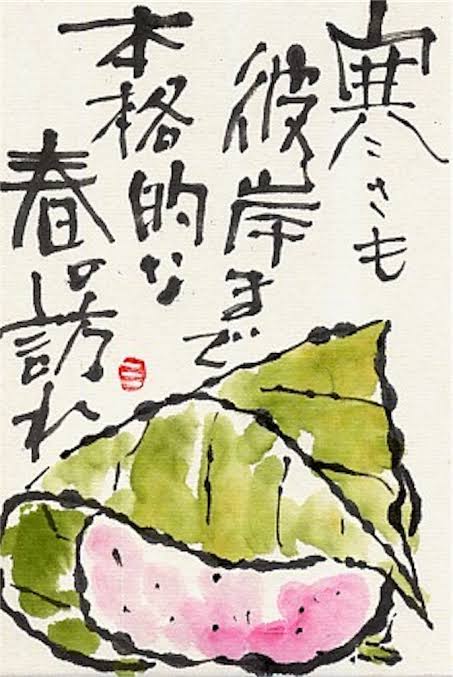 寒さも
彼岸まで
本格的な
春の訪れ